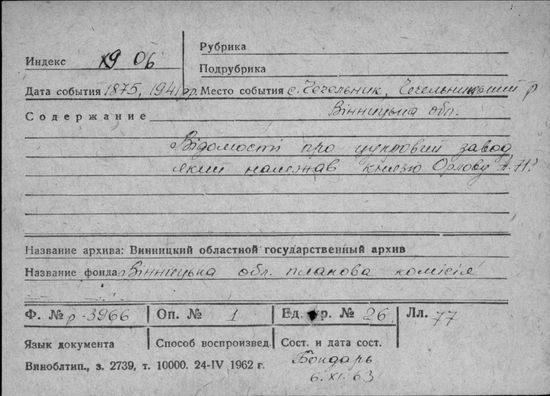 Рубрика
Индекс х9 06
Подрубрика
Дата события 1875, 1941 рр. Место события с. Чечельник, Чечельницький р
Содержание Вінницька обл.
Відомості про цукровий завод
який належав князю Орлову
Название архива: Винницкий областной государственный архив
Название фонда: Вінницька обл. планова комісія
Ф. № р-3966 Оп. № 1 Ед. хр. № 26 Лл. 77
Язык документа Способ воспроизвед. Сост. и дата сост.
Виноблтип., з. 2739, т. 10000. 24-IV 1962 г. Бондарь
6.XI.63